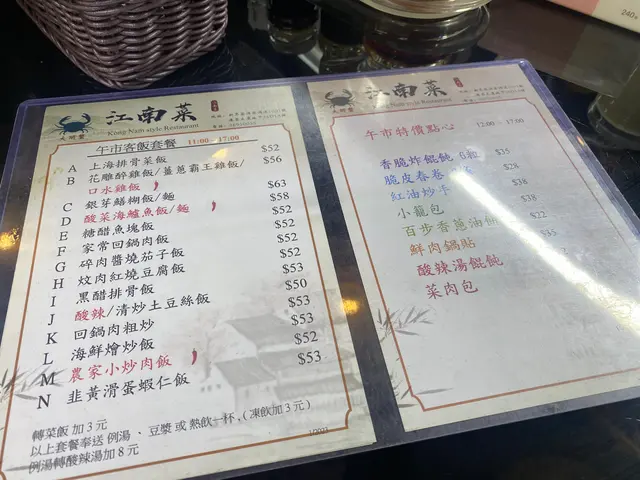 江南菜
Kong Nam style Restaurant
午市客飯套餐 11:00 - 17:00
A 上海排骨菜飯 $52
B 花雕醉雞飯/薑蔥霸王雞飯/ $56
口水雞飯
C 銀芽鱔糊飯/麵 $63
D 酸菜海鱸魚飯/麵 $58
E 糖醋魚塊飯 $52
F 家常回鍋肉飯 $52
G 碎肉醬燒茄子飯 $52
H 炆肉紅燒豆腐飯 $52
I 黑醋排骨飯 $53
J 酸辣/清炒土豆絲飯 $50
K 回鍋肉粗炒 $53
L 海鮮燴炒飯 $53
M 農家小炒肉飯 $52
N 韭黃滑蛋蝦仁飯 $53
轉菜飯 加 3 元
以上套餐奉送 例湯、豆漿 或 熱飲一杯,(凍飲加 3 元)
例湯轉酸辣湯加 8 元
江南菜
Kong Nam style Restaurant
午市特價點心 12:00 - 17:00
香脆炸餛飩 6粒 $35
脆皮春卷 $28
紅油炒手 $38
小籠包 $38
百步香蔥油餅 $22
鮮肉鍋貼
酸辣湯餛飩
菜肉包
240